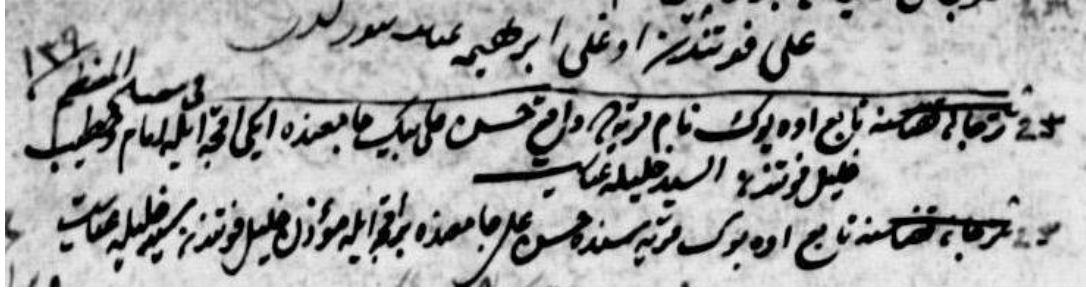 علی فوتندن اوغلی ابرهیمه عنایت بیورلدی
فی شعبان المعظم
قضاسنه تابع اوه بوک نام قریه‌ده واقع حسن علی بیک جامعنده ایکی اقچه ایله امام و خطیب
خلیل فوتندن السید خلیله عنایت
قضاسنه تابع اوه بوک قریه‌سنده حسن علی جامعنده بر اقچه ایله مؤذن خلیل فوتندن سید خلیله عنایت